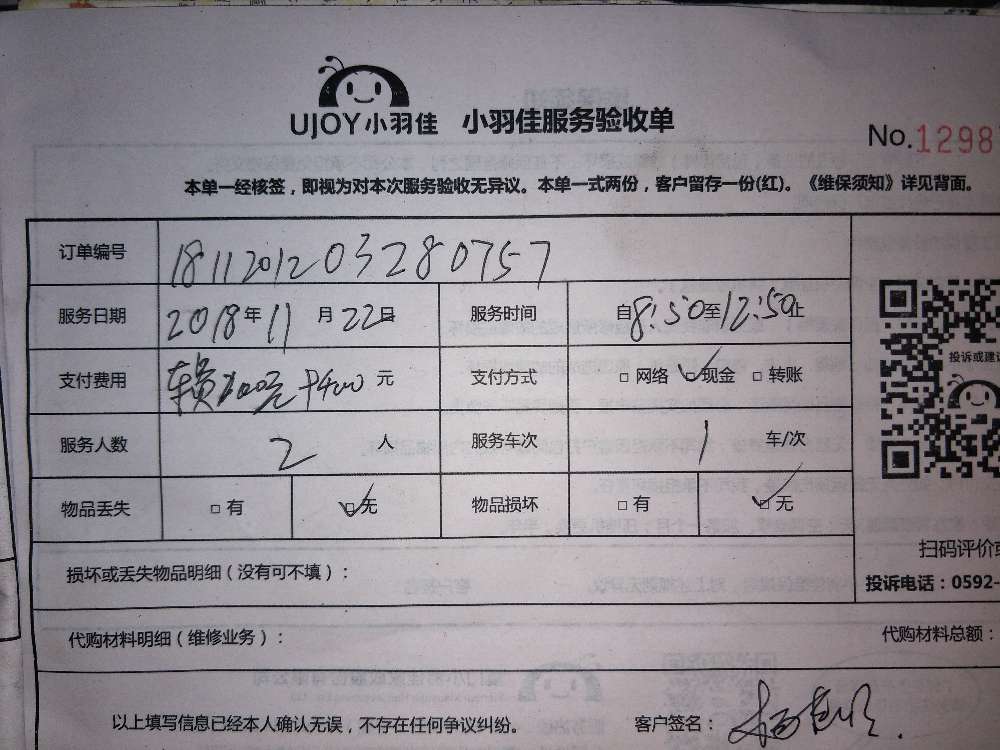 UJOY小羽佳 小羽佳服务验收单
No.1298
本单一经核签，即视为对本次服务验收无异议。本单一式两份，客户留存一份(红)。《维保须知》详见背面。
订单编号 181120120 03280757
服务日期 2018年11月22日 服务时间 自8:50至12:50止
支付费用 +400元 支付方式 □网络 ☑现金 □转账
投诉或建议
服务人数 2人 服务车次 1车/次
物品丢失 □有 ☑无 物品损坏 □有 ☑无
扫码评价或
损坏或丢失物品明细（没有可不填）：
投诉电话：0592-
代购材料明细（维修业务）：
代购材料总额：
以上填写信息已经本人确认无误，不存在任何争议纠纷。 客户签名：